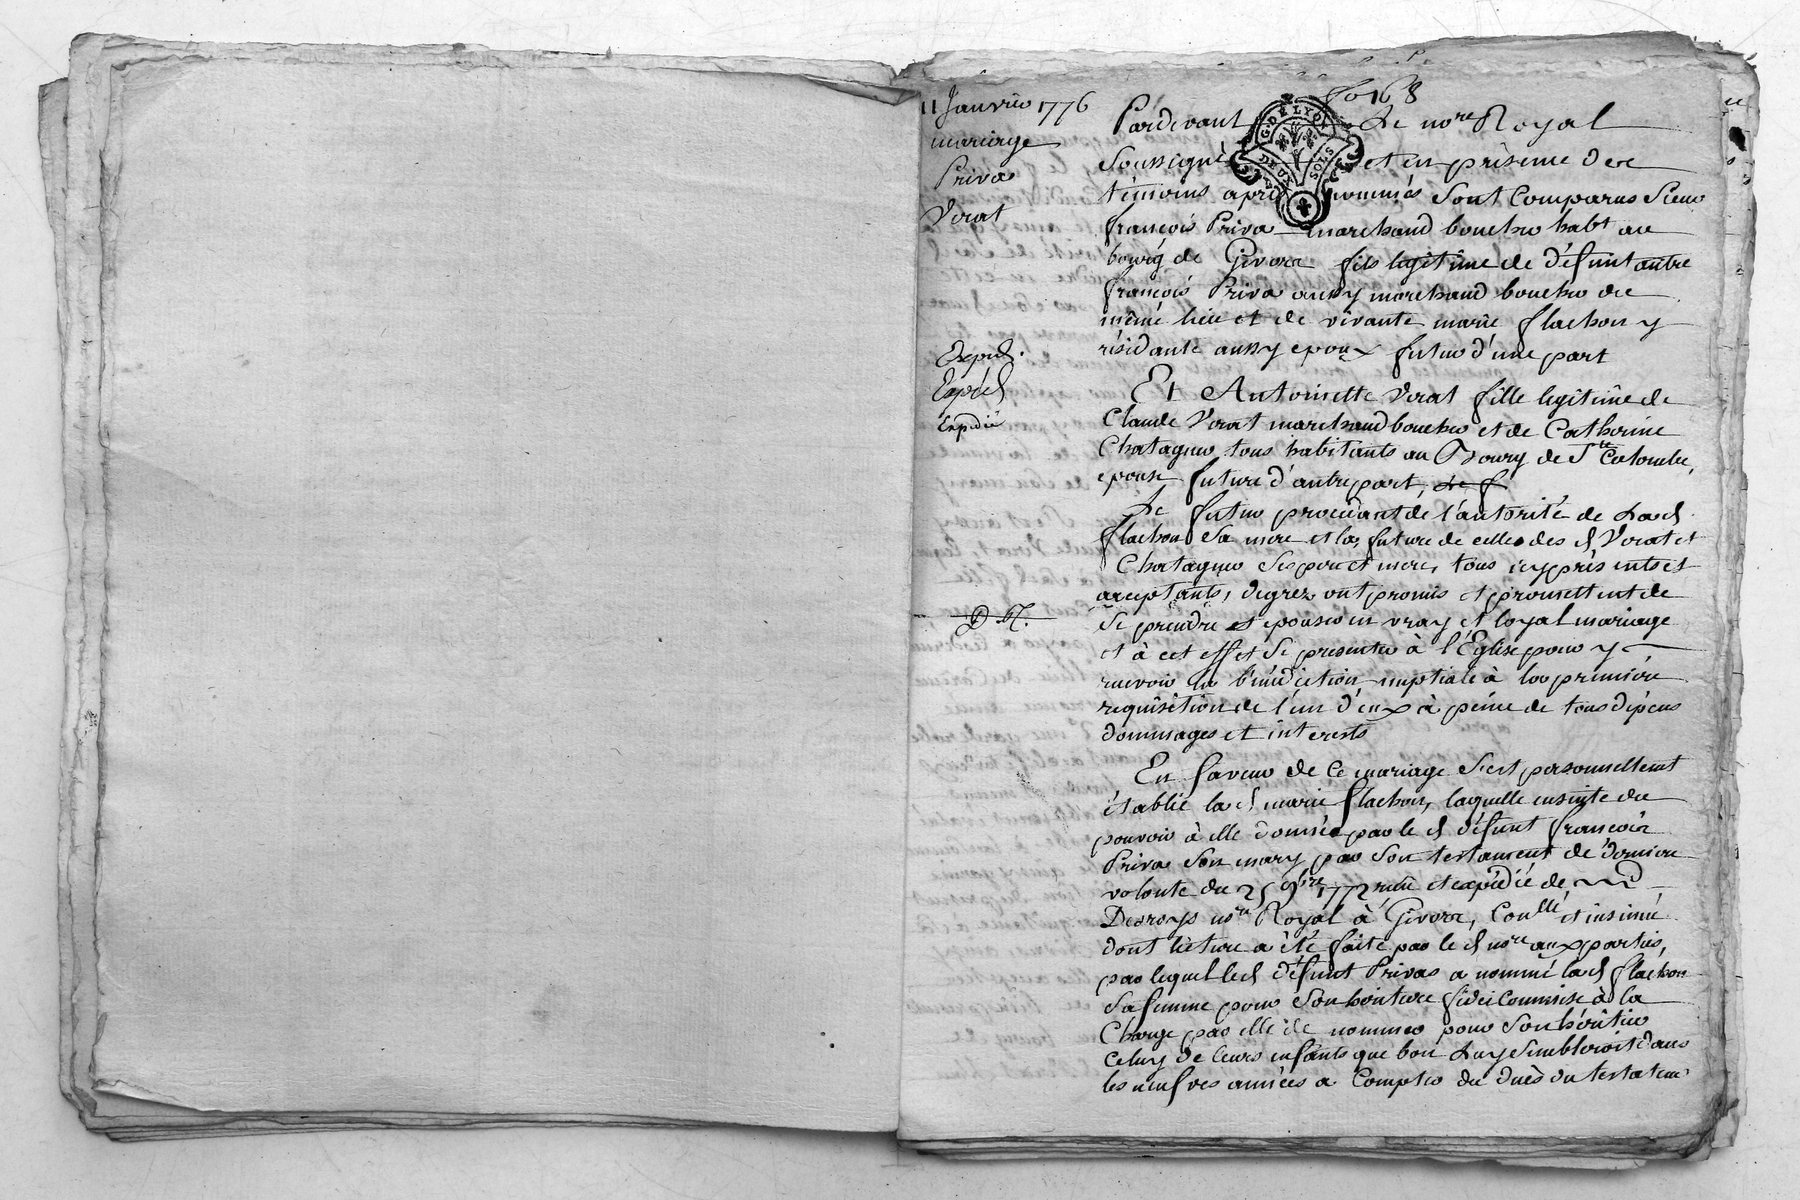 fo 168
11 Janvier 1776
mariage
Priva
Verat
Expéd.
Expéd
Expédié
D M.
G. DE LYON
DEUX SOLS
Pardevant Le nore Royal
Soussigné et en présence des
témoins après nommés Sont Comparus Sieur
françois Priva marchand boucher habt au
bourg de Givors fils legitime de défunt autre
françois Priva aussy marchand boucher du
même lieu et de vivante marie flachon y
résidante aussy epoux futur d'une part
Et Antoinette Verat fille legitime de
Claude Verat marchand boucher et de Catherine
Chatagner tous habitants au Bourg de Ste Colombe,
epouse future d'autre part, Le f
Le futur procedant de l'autorité de Lad
flachon Sa mere et la future de celle des d Verat et
Chatagner Ses pere et mere, tous icy présents et
acceptants, degrez ont promis et promettent de
Se prendre et epouser en vray et loyal mariage
et à cet effet Se presenter à l'Eglise pour y
recevoir la bénédiction nuptiale à la première
requisition de l'un d'eux à peine de tous dépens
dommages et interests
En faveur de Ce mariage S'est personnellement
établie la d marie flachon, laquelle ensuite du
pouvoir à elle donné par le d défunt françois
Priva Son mary par Son testament de dernière
volonté du 25 9bre 1772 reçu et expédié de
Desroys nore Royal à Givors, Conllé et insinué
dont lecture a été faite par le d nore aux parties,
par lequel led défunt Privas a nommé lad flachon
Sa femme pour Son héritière fidei commise à la
Charge par elle de nommer pour Son héritier
Celuy de leurs enfants que bon Luy Sembleroit dans
les neufves années a Compter du decès du testateur